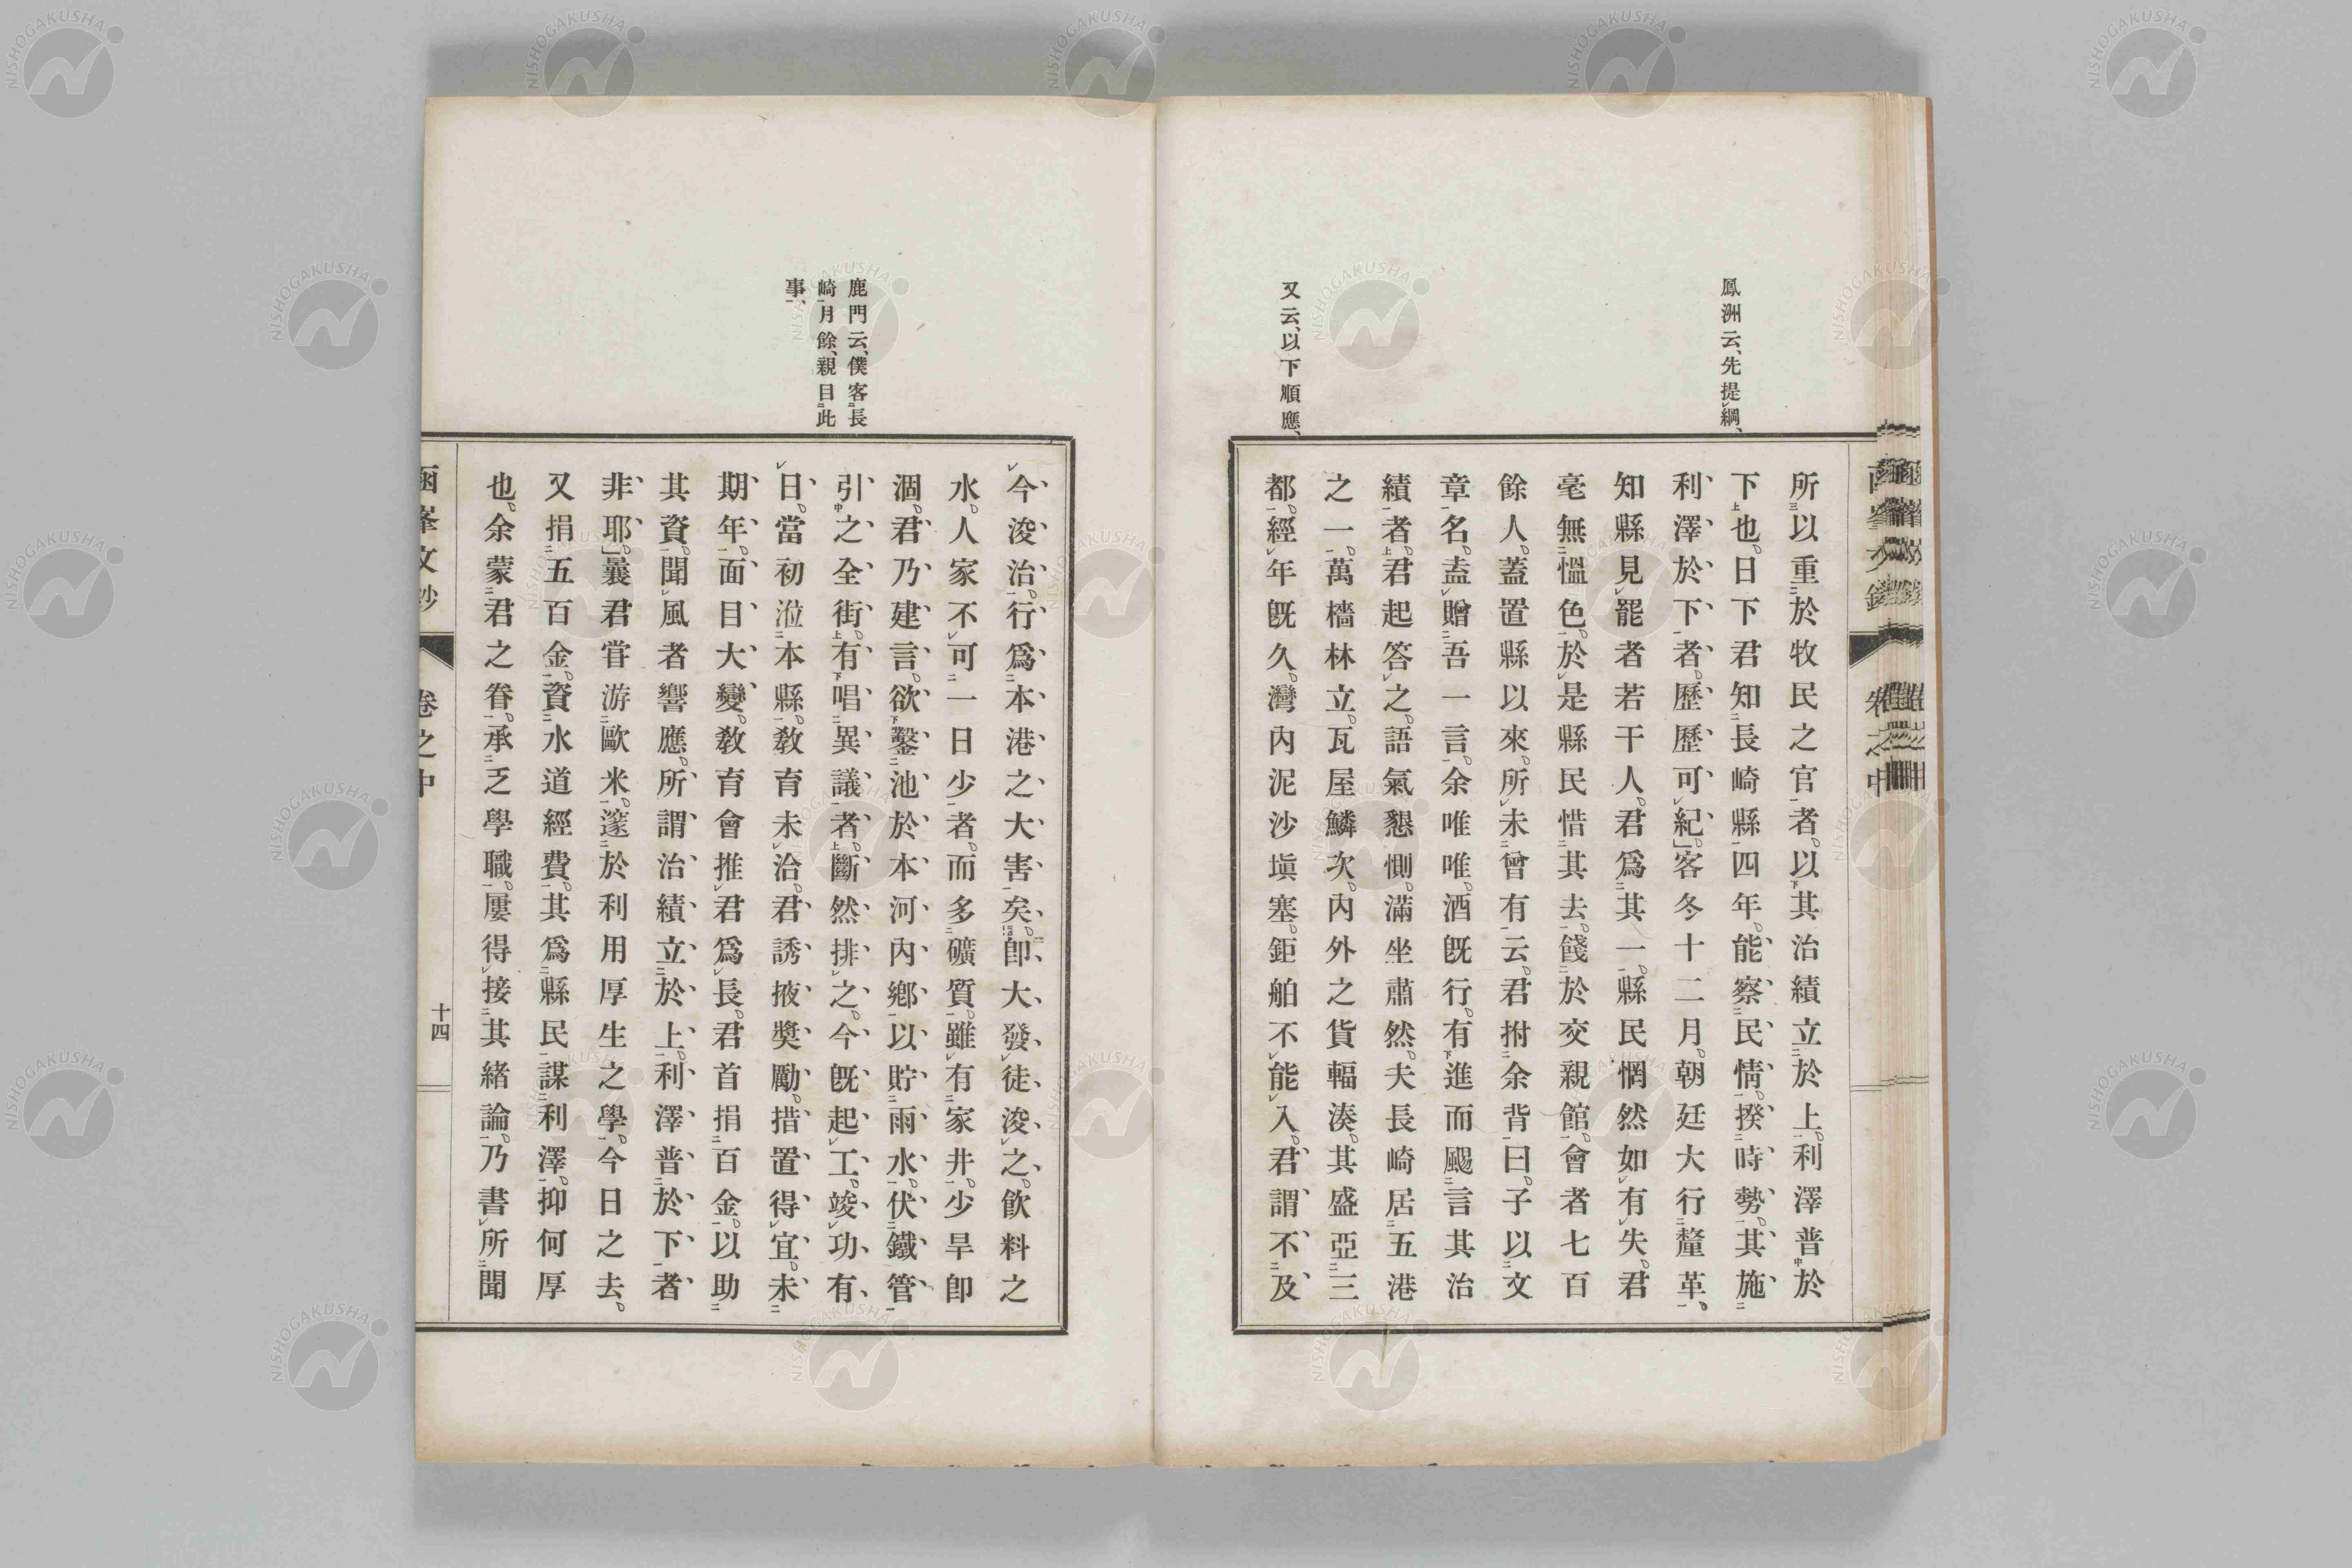 鳳洲云、先提綱、
又云、以下順應、
所以重於牧民之官者。以其治績立於上。利澤普於
下也。日下君知長崎縣四年。能察民情。揆時勢。其施
利澤於下者。歷歷可紀。」客冬十二月。朝廷大行釐革、
知縣見罷者若干人。君爲其一。縣民惘然如有失。君
毫無慍色。於是縣民惜其去。餞於交親館。會者七百
餘人。蓋置縣以來。所未曾有云。君拊余背曰。子以文
章名。盍贈吾一言。余唯唯。酒既行。有進而颺言其治
績者。君起答之。語氣懇惻。滿坐肅然。夫長崎居五港
之一。萬檣林立。瓦屋鱗次。內外之貨輻湊。其盛亞三
都。經年既久。灣內泥沙塡塞。鉅舶不能入。君謂不及
鹿門云、僕客長
崎月餘、親目此
事、
今浚治。行爲本港之大害矣。卽大發徒浚之。飮料之
水。人家不可一日少者。而多礦質。雖有家井。少旱卽
涸。君乃建言。欲鑿池於本河內鄕。以貯雨水。伏鐵管
引之全街。有唱異議者。斷然排之。今既起工。竣功有
日。當初涖本縣。敎育未洽。君誘掖奬勵。措置得宜。未
期年。面目大變。敎育會推君爲長。君首捐百金。以助
其資。聞風者響應。所謂治績立於上。利澤普於下者
非耶。」曩君甞游歐米。邃於利用厚生之學。今日之去。
又捐五百金。資水道經費。其爲縣民謀利澤。抑何厚
也。余蒙君之眷。承乏學職。屢得接其緒論。乃書所聞
函峯文鈔
卷之中
十四